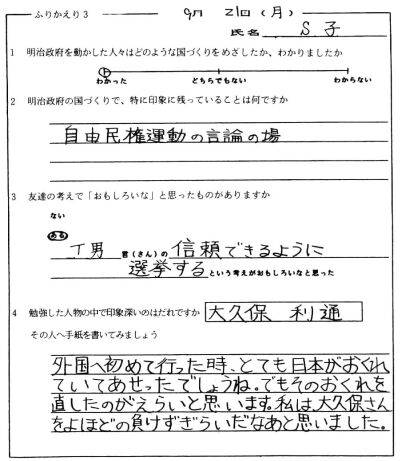 ふりかえり3　9月 21日(月)
氏名 S子
1 明治政府を動かした人々はどのような国づくりをめざしたか、わかりましたか
わかった　どちらでもない　わからない
2 明治政府の国づくりで、特に印象に残っていることは何ですか
自由民権運動の言論の場
3 友達の考えで「おもしろいな」と思ったものがありますか
ない
ある
T男 君(さん)の 信頼できるように
選挙する という考えがおもしろいなと思った
4 勉強した人物の中で印象深いのはだれですか 大久保 利通
その人へ手紙を書いてみましょう
外国へ初めて行った時、とても日本がおくれ
ていてあせったでしょうね。でもそのおくれを
直したのがえらいと思います。私は、大久保さん
をよほどの負けずぎらいだなあと思いました。